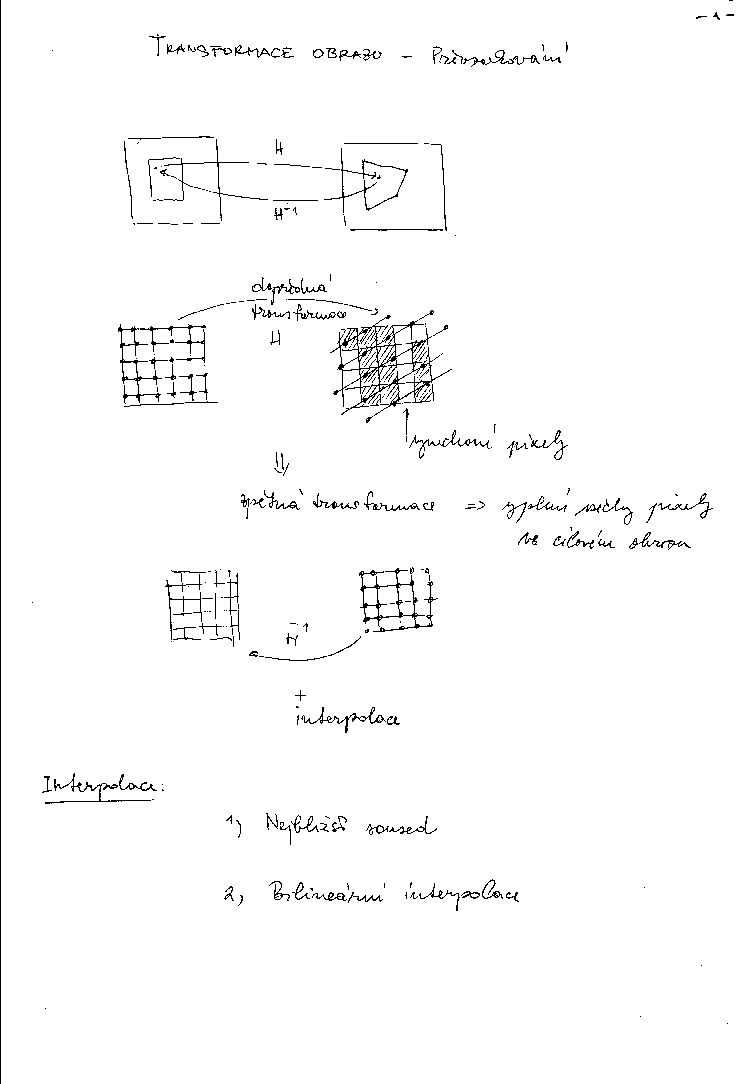 - 1 -
TRANSFORMACE OBRAZU - Převzorkování
H
H⁻¹
dopředná
transformace
H
vynechané pixely
⇓
zpětná transformace => vyplní všechny pixely
ve cílovém obrazu
H⁻¹
+
interpolace
Interpolace:
1) Nejbližší soused
2) Bilineární interpolace